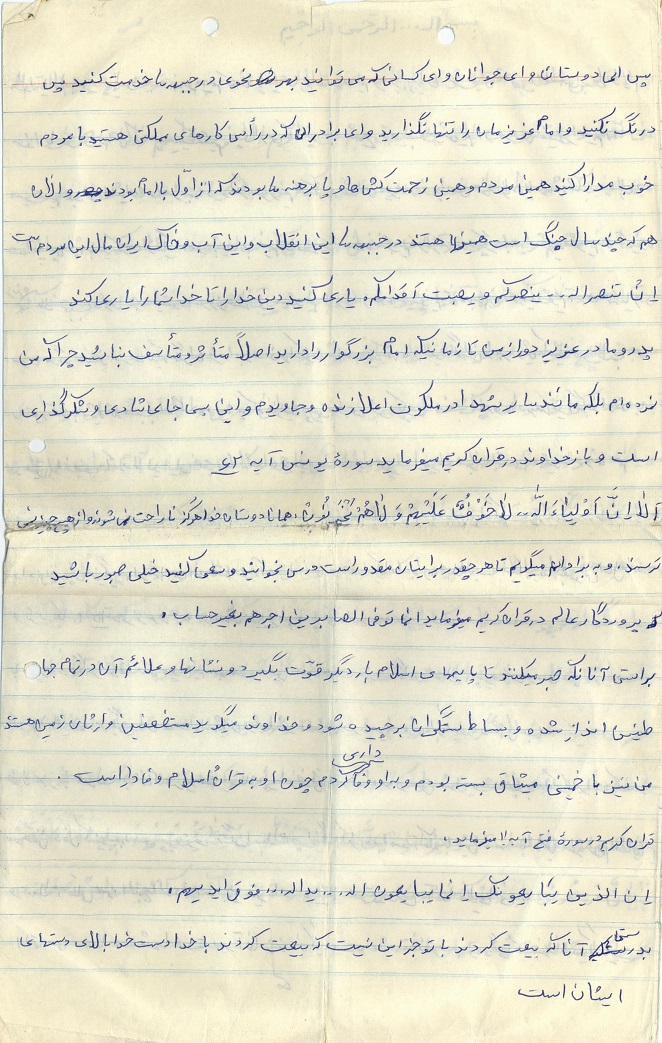 پس ای دوستان و ای جوانان و ای کسانی که می توانید بهر نحوی در جبهه ها خدمت کنید پس
درنگ نکنید و امام عزیزمان را تنها نگذارید و ای برادرانی که در رأس کارهای مملکتی هستید با مردم
خوب مدارا کنید همین مردم و همین زحمت کش ها و پا برهنه ها بودند که از اول با امام بودند و الان
هم که چند سال جنگ است همینها هستند در جبهه ها این انقلاب و این آب و خاک ایران مال این مردم است
ان تنصر اله... ینصرکم و یصبت اقدامکم. یاری کنید دین خدا را تا خدا شما را یاری کند
پدر و مادر عزیز دور از من تا زمانیکه امام بزرگوار را دارید اصلاً متأثر و متأسف نباشید چرا که من
نمرده ام بلکه مانند سایر شهدا در ملکوت اعلا زنده و جاویدم و این بسی جای شادی و شکرگذاری
است و باز خداوند در قرآن کریم میفرماید سورهٔ یونس آیه ۶۲
اَلا اِنَّ اَوْلِیاءَ اللّٰه.. لاٰ خَوْفٌ عَلَیْهِمْ وَ لاٰ هُمْ یَحْزَنُونْ. همانا دوستان خدا هرگز ناراحت نمی شوند و از هیچ چیز نمی
ترسند. و به برادرانم میگویم تا هر چقدر برایتان مقدور است درس بخوانید و سعی کنید خیلی صبور باشید
پروردگار عالم در قرآن کریم میفرماید انما توفی الصابرین اجرهم بغیر حساب.
براستی آنانکه صبر میکنند تا پایه های اسلام بار دیگر قوّت بگیرد و نشانها و علائم آن در تمام جهان
طنین انداز شده و بساط ستمگران برچیده شود و خداوند میگوید مستضعفین وارثان زمین هستند
من نیز با خمینی میثاق بسته بودم و به او وفاداری کردم چون او به قرآن و اسلام وفادار است.
قرآن کریم در سورهٔ فتح آیه ۱۰ میفرماید.
ان الذین یبایعونک انما یبایعون اله... یداله... فوق ایدیهم.
بدرستیکه آنانکه بیعت کردند با تو جز این نیست که بیعت کردند با خدا دست خدا بالای دستهای
ایشان است